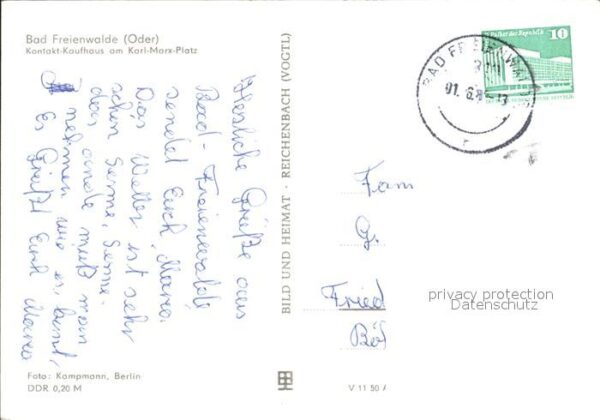 Bad Freienwalde (Oder)
Kontakt-Kaufhaus am Karl-Marx-Platz
Herzliche Grüße aus
Bad-Freienwalde
sendet Euch Marco.
Das Wetter ist sehr
schön Sonne, Sonne.
das ande muß man
nehmen wie es kommt,
Es Grüßt Euch Marco
Foto: Kampmann, Berlin
DDR 0,20 M
BILD UND HEIMAT · REICHENBACH (VOGTL)
V 11 50 A
Palast der Republik
10
BAD FREIENWAL
01. 6.8
Fam
G.
Fried
privacy protection
Datenschutz